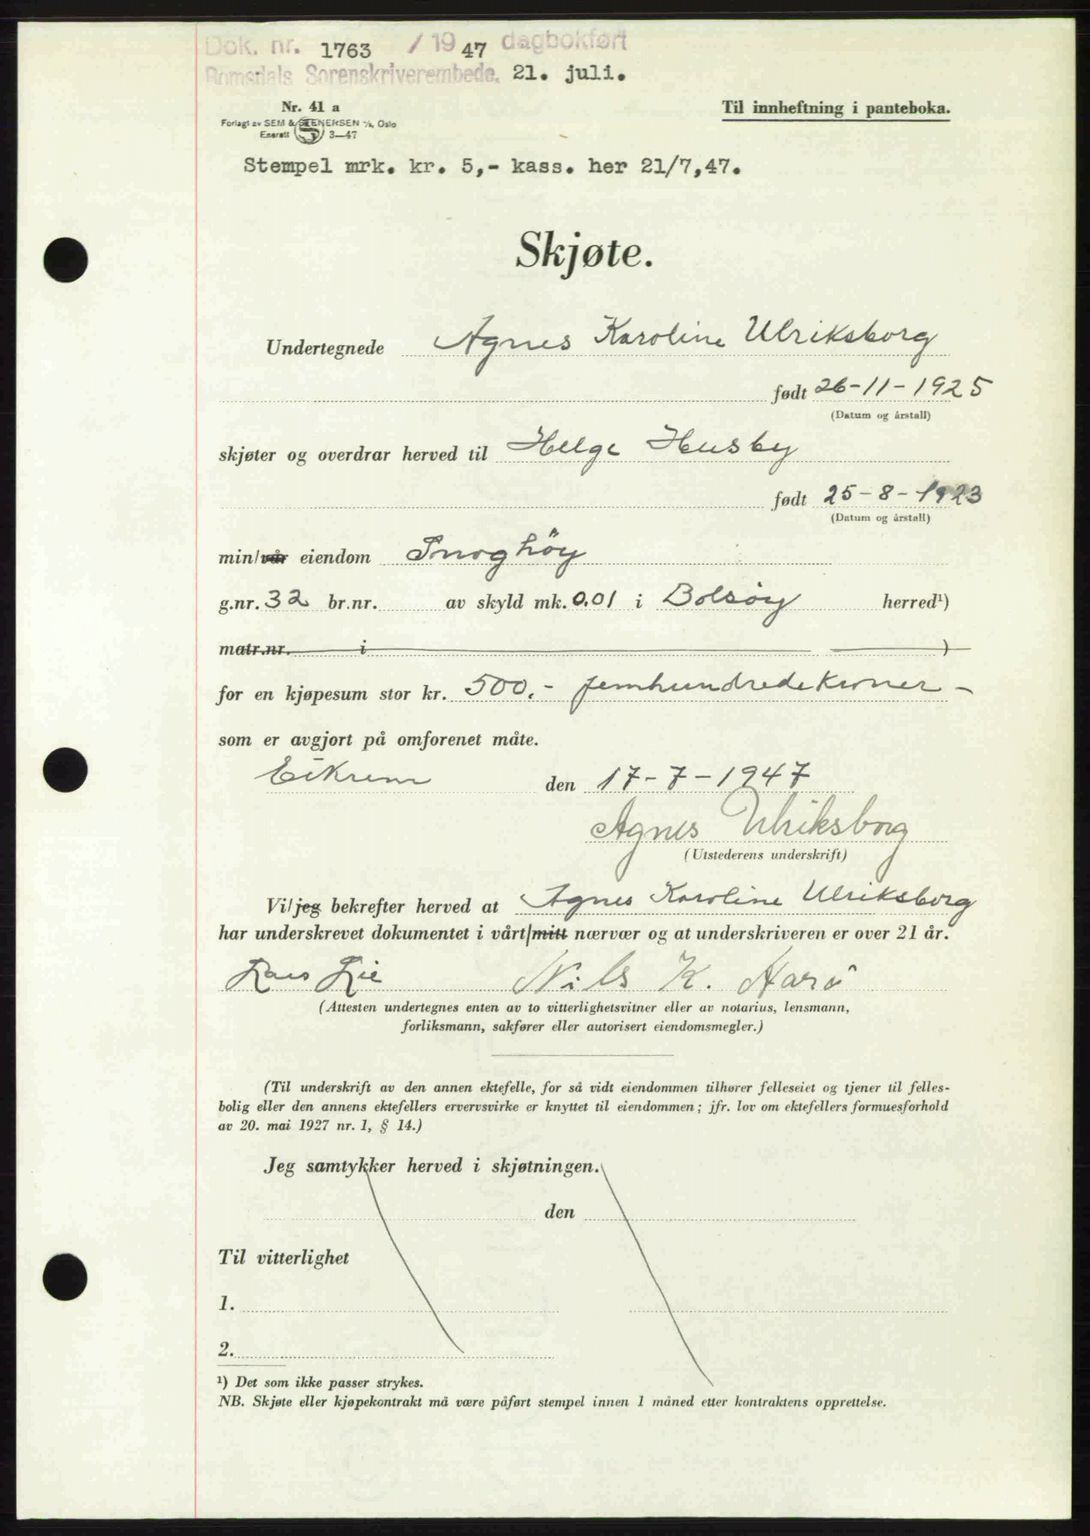 Dok. nr. 1763 / 1947 dagbokført
Romsdals Sorenskriverembede. 21. juli.
Nr. 41 a
Til innheftning i panteboka.
Forlagt av SEM & STENERSEN A/S, Oslo
Enerett S 3—47
Stempel mrk. kr. 5,- kass. her 21/7,47.
Skjøte.
Undertegnede Agnes Karoline Ulriksborg
født 26-11-1925
(Datum og årstall)
skjøter og overdrar herved til Helge Husby
født 25-8-1923
(Datum og årstall)
min/vår eiendom Snoghöy
g.nr. 32 br.nr. av skyld mk. 0.01 i Bolsöy herred¹)
matr.nr. i )
for en kjøpesum stor kr. 500.- femhundredekroner -
som er avgjort på omforenet måte.
Eikrem den 17-7-1947
Agnes Ulriksborg
(Utstederens underskrift)
Vi/jeg bekrefter herved at Agnes Karoline Ulriksborg
har underskrevet dokumentet i vårt/mitt nærvær og at underskriveren er over 21 år.
Lars Lie Nils K. Harö
(Attesten undertegnes enten av to vitterlighetsvitner eller av notarius, lensmann,
forliksmann, sakfører eller autorisert eiendomsmegler.)
(Til underskrift av den annen ektefelle, for så vidt eiendommen tilhører felleseiet og tjener til felles-
bolig eller den annens ektefellers ervervsvirke er knyttet til eiendommen; jfr. lov om ektefellers formuesforhold
av 20. mai 1927 nr. 1, § 14.)
Jeg samtykker herved i skjøtningen.
den
Til vitterlighet
1.
2.
¹) Det som ikke passer strykes.
NB. Skjøte eller kjøpekontrakt må være påført stempel innen 1 måned etter kontraktens opprettelse.